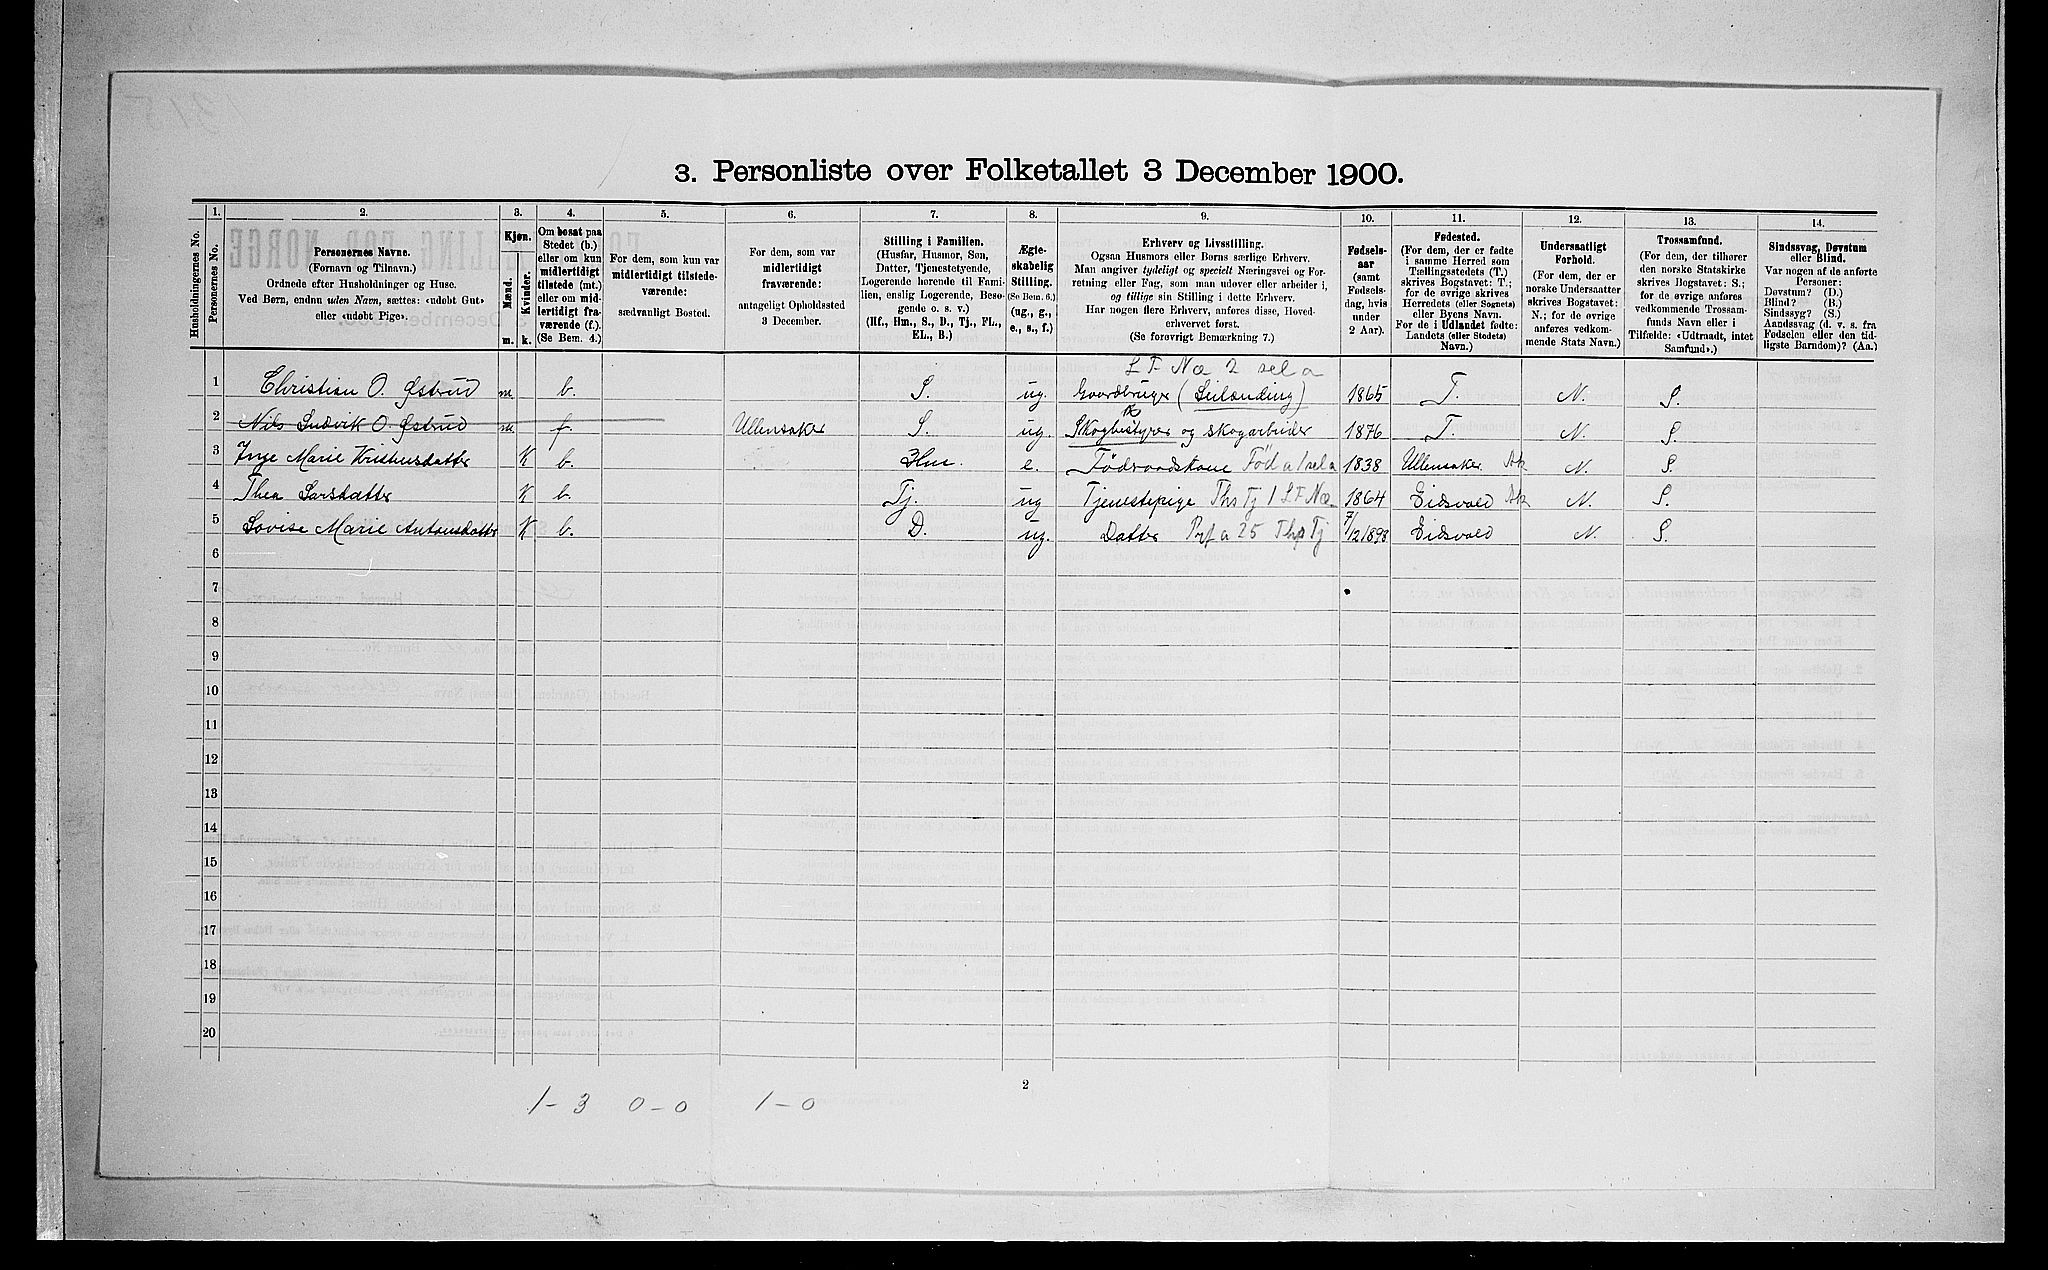 3. Personliste over Folketallet 3 December 1900.
1. 2. 3. 4. 5. 6. 7. 8. 9. 10. 11. 12. 13. 14.
Husholdningernes No.
Personernes No.
Personernes Navne.
(Fornavn og Tilnavn.)
Ordnede efter Husholdninger og Huse.
Ved Børn, endnu uden Navn, sættes: «udøbt Gut»
eller «udøbt Pige».
Kjøn.
Mænd.
Kvinder.
m. k.
Om bosat paa
Stedet (b.)
eller om kun
midlertidigt
tilstede (mt.)
eller om mid-
lertidigt fra-
værende (f.).
(Se Bem. 4.)
For dem, som kun var
midlertidigt tilstede-
værende:
sædvanligt Bosted.
For dem, som var
midlertidigt
fraværende:
antageligt Opholdssted
3 December.
Stilling i Familien.
(Husfar, Husmor, Søn,
Datter, Tjenestetyende,
Logerende hørende til Fami-
lien, enslig Logerende, Besø-
gende o. s. v.)
(Hf., Hm., S., D., Tj., FL.,
EL., B.)
Ægte-
skabelig
Stilling.
(Se Bem. 6.)
(ug., g.,
e., s., f.)
Erhverv og Livsstilling.
Ogsaa Husmors eller Børns særlige Erhverv.
Man angiver tydeligt og specielt Næringsvei og For-
retning eller Fag, som man udøver eller arbeider i,
og tillige sin Stilling i dette Erhverv.
Har nogen flere Erhverv, anføres disse, Hoved-
erhvervet først.
(Se forøvrigt Bemærkning 7.)
Fødsels-
aar
(samt
Fødsels-
dag, hvis
under
2 Aar).
Fødested.
(For dem, der er fødte
i samme Herred som
Tællingsstedets (T.)
skrives Bogstavet: T.;
for de øvrige skrives
Herredets (eller Sognets)
eller Byens Navn.
For de i Udlandet fødte:
Landets (eller Stedets)
Navn.)
Undersaatligt
Forhold.
(For dem, der er
norske Undersaatter
skrives Bogstavet:
N.; for de øvrige
anføres vedkom-
mende Stats Navn.)
Trossamfund.
(For dem, der tilhører
den norske Statskirke
skrives Bogstavet: S.;
for de øvrige anføres
vedkommende Trossam-
funds Navn eller i
Tilfælde: «Udtraadt, intet
Samfund».)
Sindssvag, Døvstum
eller Blind.
Var nogen af de anførte
Personer:
Døvstum? (D.)
Blind? (B.)
Sindssyg? (S.)
Aandssvag (d. v. s. fra
Fødselen eller den tid-
ligste Barndom)? (Aa.)
L F. Næ 2 sel a
1 Christian O. Østrud m b. S. ug. Gaardbruger (Leilænding) 1865 T. N. S.
2 Nils Ludvik O. Østrud m f. Ullensaker S. ug. Skogbestyrer og skogarbeider 1876 T. N. S.
3 Inge Marie Kristensdatter K b. Hm. e. Fødraadskone Fød a/sel a 1838 Ullensaker Ak N. S.
4 Thea Larsdatter K b. Tj. ug Tjenestepige Ths Tj 1 L F. Næ 1864 Eidsvold Ak N. S.
5 Lovise Marie Antonsdatter K b. D. ug. Datter Prf a 25 Ths Tj 7/12 1898 Eidsvold N. S.
6
7
8
9
10
11
12
13
14
15
16
17
18
19
20
2
1-3 0-0 1-0